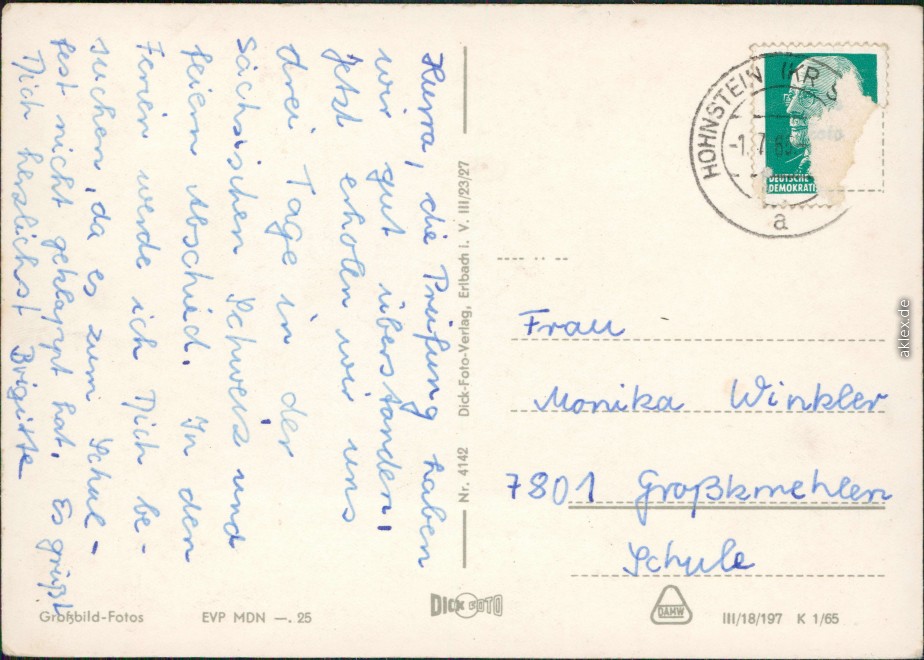 Hurra, die Prüfung haben
wir gut überstanden,
Jetzt erholen wir uns
drei Tage in der
Sächsischen Schweiz und
feiern Abschied. In den
Ferien werde ich Dich be-
suchen, da es zum Schul-
fest nicht geklappt hat. Es grüßt
Dich herzlichst Brigitte
Nr. 4142 Dick-Foto-Verlag, Erlbach i. V. III/23/27
HOHNSTEIN (KR S
-1.7.65
a
DEUTSCHE
DEMOKRATI
Frau
Monika Winkler
7801 Großkmehlen
Schule
Großbild-Fotos EVP MDN —. 25
DICK FOTO
DAMW
III/18/197 K 1/65
akpool.de